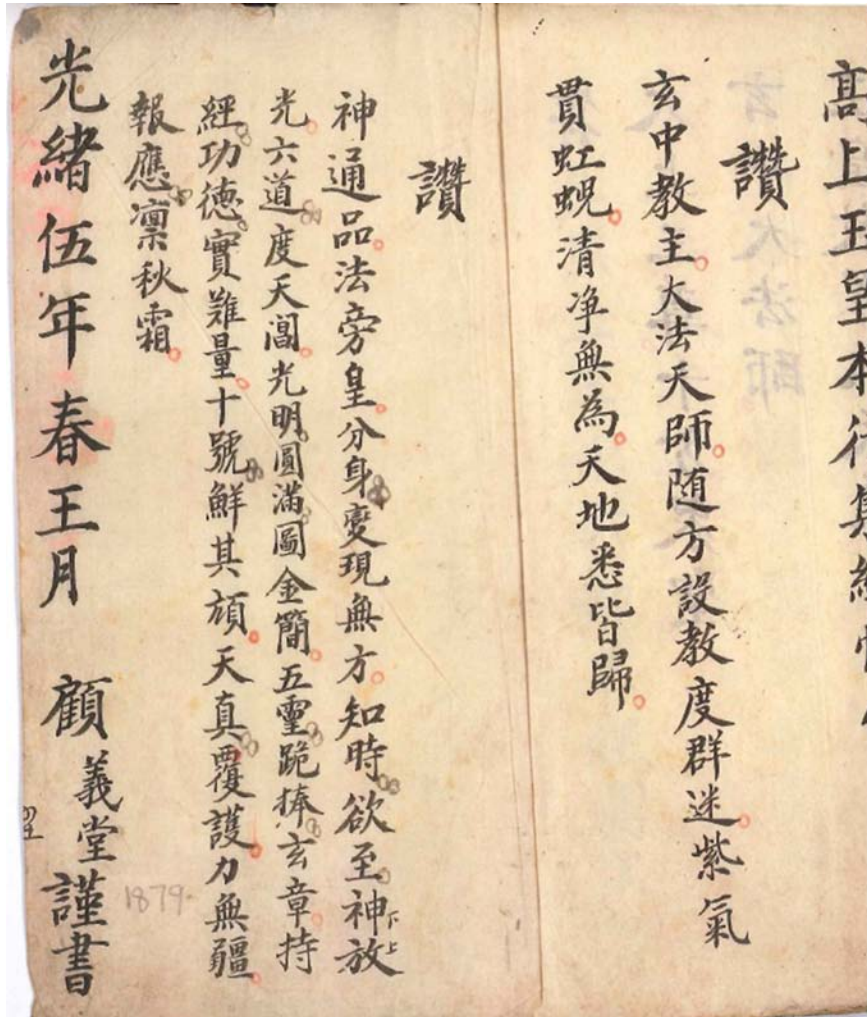 高上玉皇本行集經
讚
玄中教主大法天師随方設教度群迷紫氣
貫虹蜺清净無為天地悉皆歸
讚
神通品法旁皇分身變現無方知時欲至神下放上
光六道度天閶光明圓滿圖金簡五靈跪捧玄章持
經功德實難量十號鮮其頏天真覆護力無疆
報應凛秋霜
光緒伍年春王月 顧義堂謹書
1879